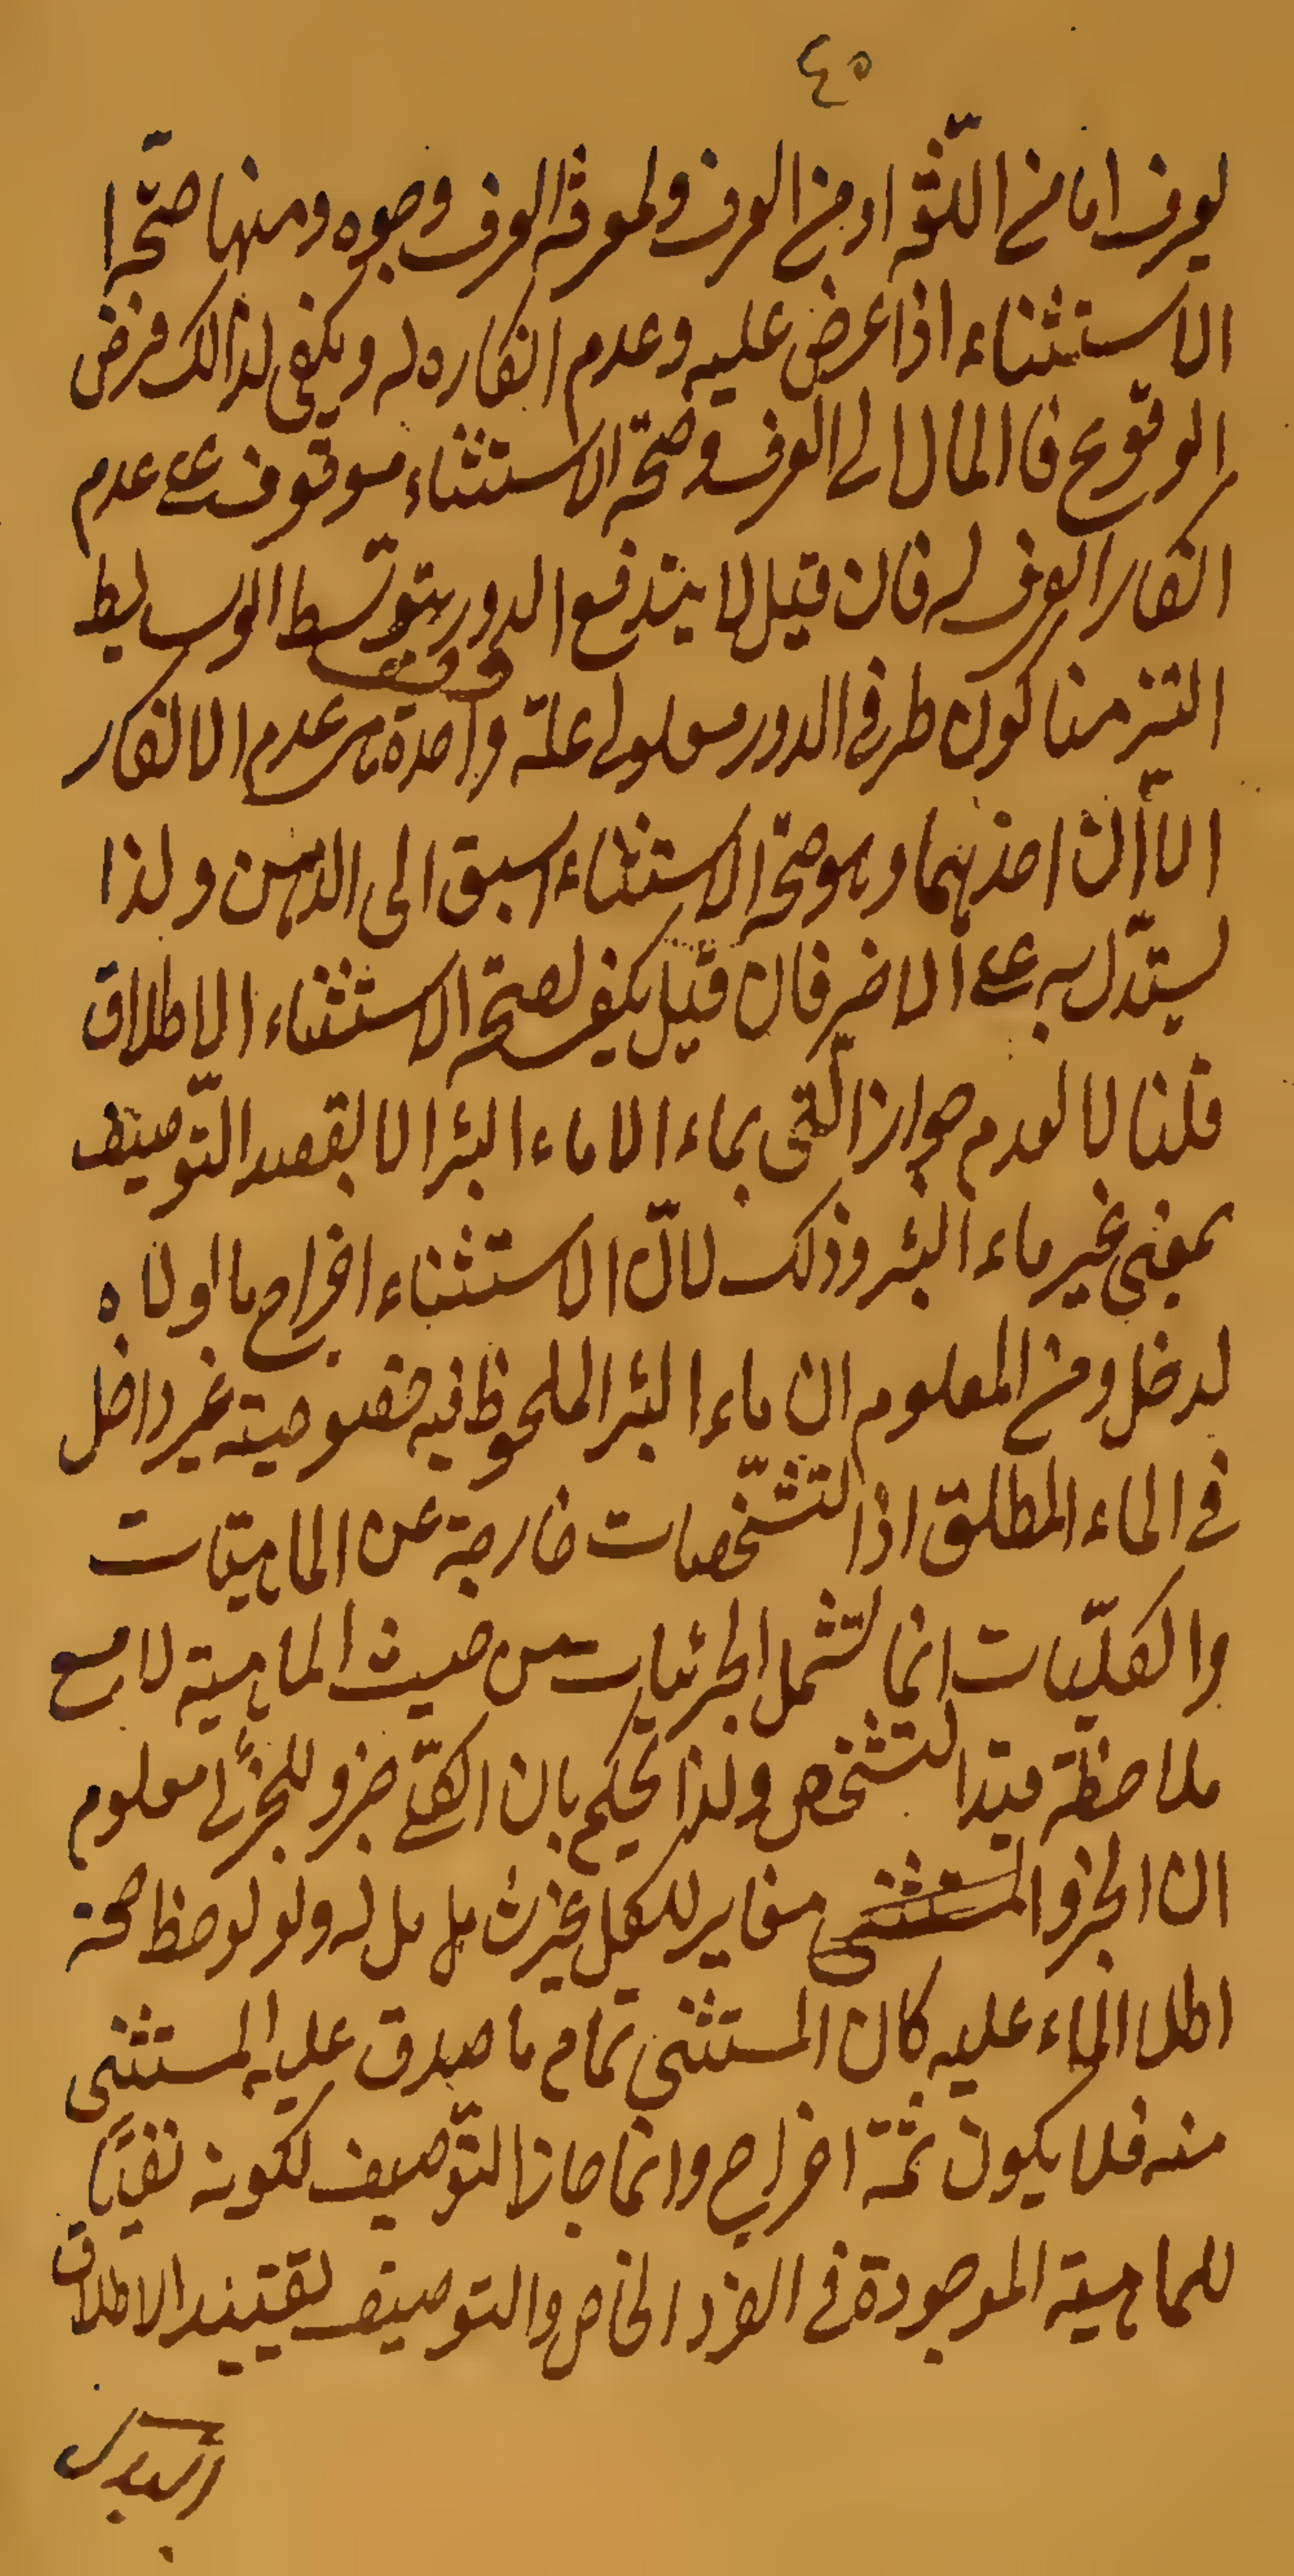 ٤٥
يعرف اما من اللّغة او من العرف ولمعرفة العرف وجوه ومنها صحّة ا
الاستثناء اذا عرض عليه وعدم انكاره له ويكفى لذالك فرض
الوقوع فالمال الى العرف وصحّة الاستثناء موقوف على عدم
انكار العرف له فان قيل لا يندفع الدور بتوسّط الوسايط
التزمنا كون طرفى الدور معلولى علّة واحدة هى عدم الانكار
الّا أن احدهما وهو صحّة الاستثناء اسبق الى الذهن ولذا
يستدّل به على الاخر فان قيل يكفى لصحّة الاستثناء الاطلاق
قلنا لا لعدم جواز ائتنى بماء الا ماء البئر الا بقصد التّوصيف
بمعنى غير ماء البئر وذلك لانّ الاستثناء اخراج ما لولاه
لدخل ومن المعلوم ان ماء البئر الملحوظ فيه خصوصيته غير داخل
فى الماء المطلق اذ التشّخصات خارجة عن الماهيّات
والكلّيات انما تشمل الجزئيات من حيث الماهية لا مع
ملاحظة قيد التشخص ولذا يحكم بان الكلّى جزو للجزئى معلوم
ان الجزو المستثنى مغاير للكل بل له ولو لوحظ صحة
اطلا الماء عليه كان المستثنى تمام ما صدق عليه المستثنى
منه فلا يكون ثمّة اخراج وانما جاز التّوصيف لكونه نفيًا
للماهية الموجودة فى الفرد الخاص والتوصيف لقييد الاطلاق